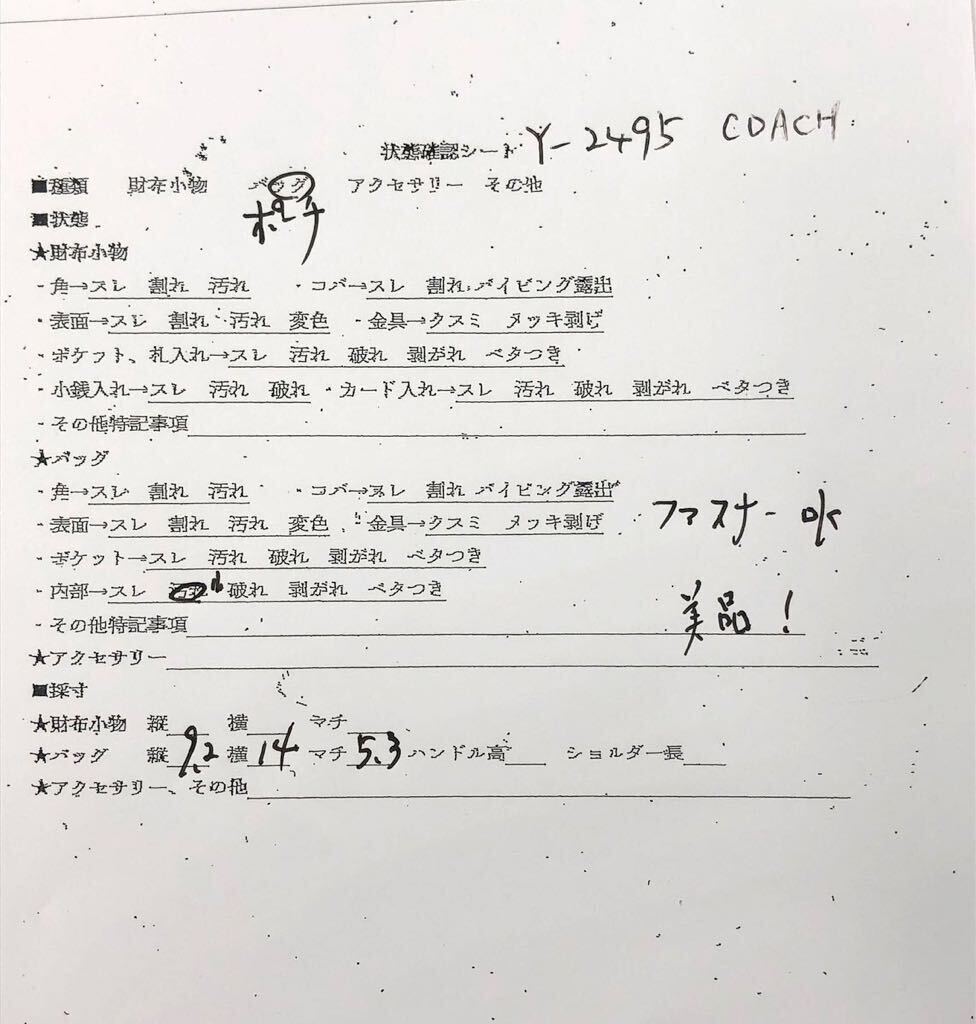 状態確認シート Y-2495 COACH
■種類 財布小物 バッグ アクセサリー その他
ポーチ
■状態
★財布小物
・角→スレ 割れ 汚れ ・コバ→スレ 割れ パイピング露出
・表面→スレ 割れ 汚れ 変色 ・金具→クスミ メッキ剥げ
・ポケット、札入れ→スレ 汚れ 破れ 剥がれ ベタつき
・小銭入れ→スレ 汚れ 破れ ・カード入れ→スレ 汚れ 破れ 剥がれ ベタつき
・その他特記事項
★バッグ
・角→スレ 割れ 汚れ ・コバ→スレ 割れ パイピング露出
・表面→スレ 割れ 汚れ 変色 ・金具→クスミ メッキ剥げ
ファスナー ok
・ポケット→スレ 汚れ 破れ 剥がれ ベタつき
・内部→スレ 汚れ 小 破れ 剥がれ ベタつき
・その他特記事項 美品!
★アクセサリー
■採寸
★財布小物 縦 横 マチ
★バッグ 縦 9.2 横 14 マチ 5.3 ハンドル高 ショルダー長
★アクセサリー、その他